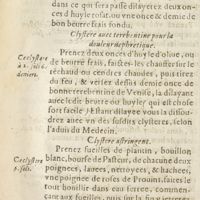 dans ce qui sera passé dilayerez deux on-
ces d'huyle rosat, ou vne once & demie de
bon beurre frais fondu.
Clystere auec terebentine pour la
douleur nephretique.
Prenez deux onces d'huyle d'oliue, ou
de beurre frais, faictes-les chauffer sur le
rechaud ou cendres chaudes, puis tirez
du feu, & versez dessus demie once de
bonne terebentine de Venise, & dilayez
auec ledit beurre ou huyle qui est chose
fort facile) Estant dilayee vous la dissou-
drez auec vn des susdits clysteres, selon
l'aduis du Medecin.
Clystere astringent.
Prenez fueilles de plantin, bouillon
blanc, bourse de Pasteur, de chacune deux
poignees, laictes, nettoyees, & hachees,
vne poignee de roses de Prouins, faites le
tout bouillir dans eau ferree, commen-
Ce clystere
Ce clystere